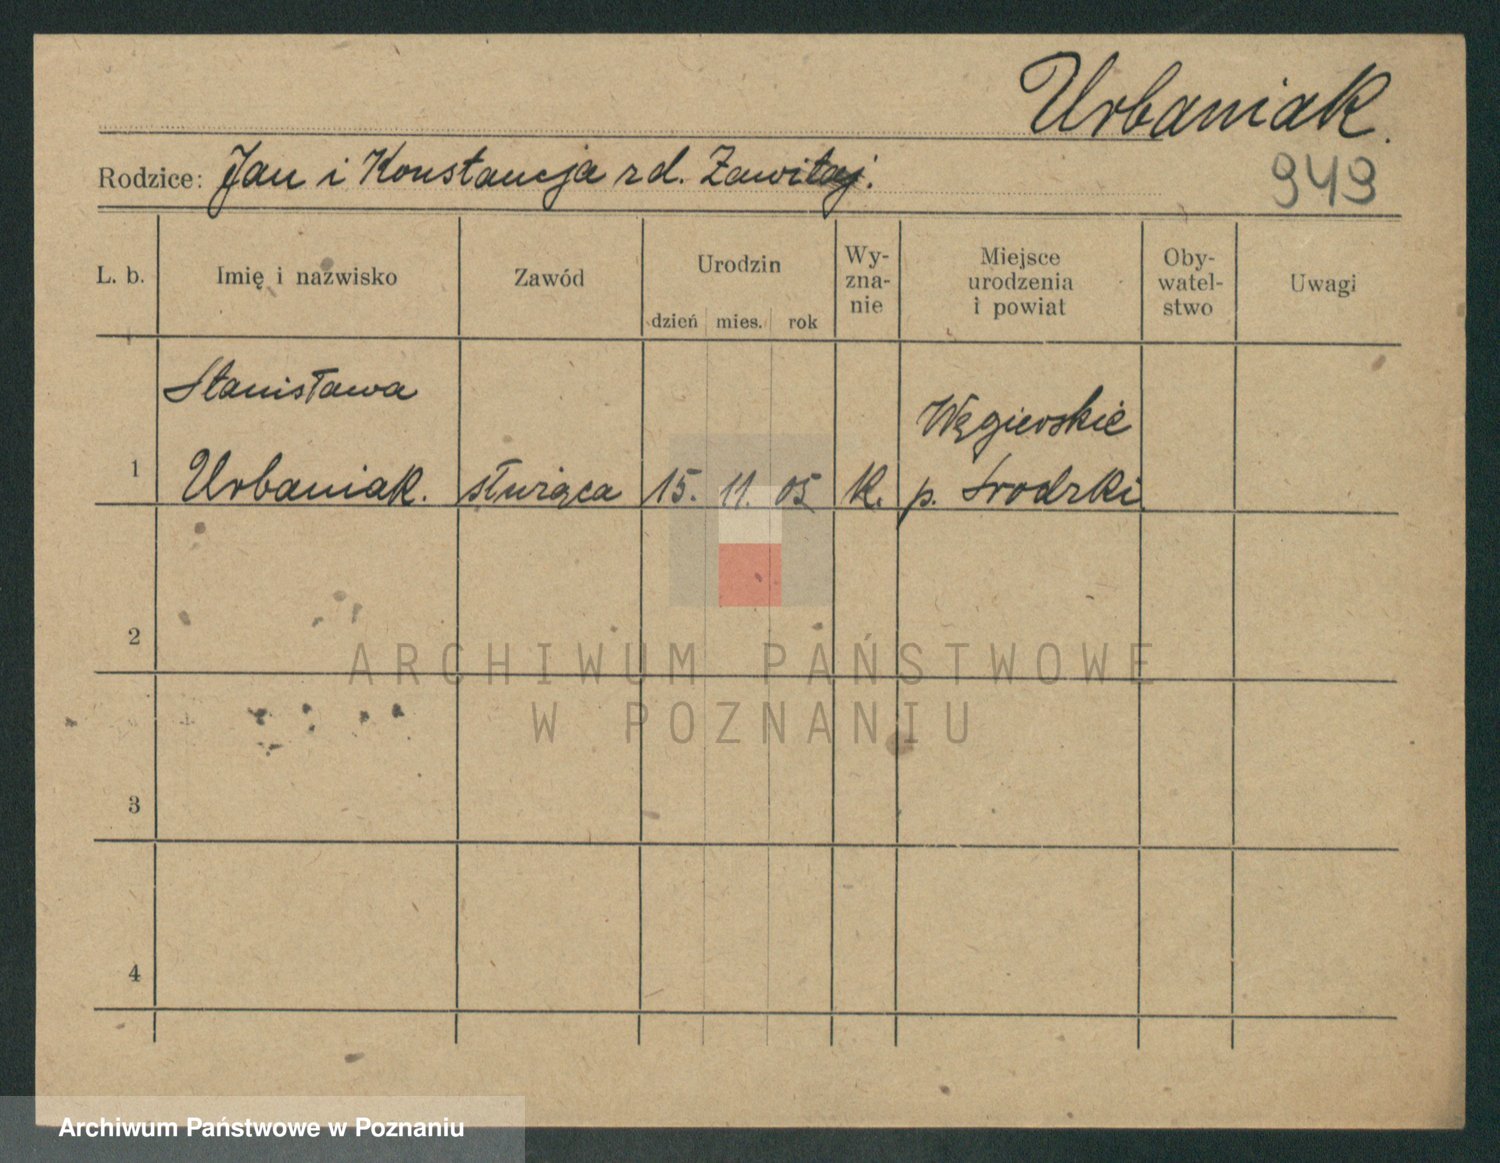 Urbaniak.
Rodzice: Jan i Konstancja rd. Zawitaj.
949
L. b.
Imię i nazwisko
Zawód
Urodzin
dzień mies. rok
Wy-
zna-
nie
Miejsce
urodzenia
i powiat
Oby-
watel-
stwo
Uwagi
Stanisława
Węgierskie
1 Urbaniak. służąca 15. 11. 05 k. p. Srodzki
2
ARCHIWUM PAŃSTWOWE
W POZNANIU
3
4
Archiwum Państwowe w Poznaniu